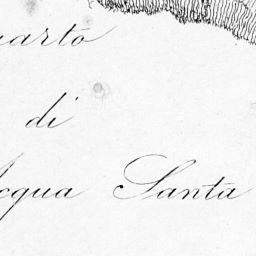 uarto
di
cqua Santa